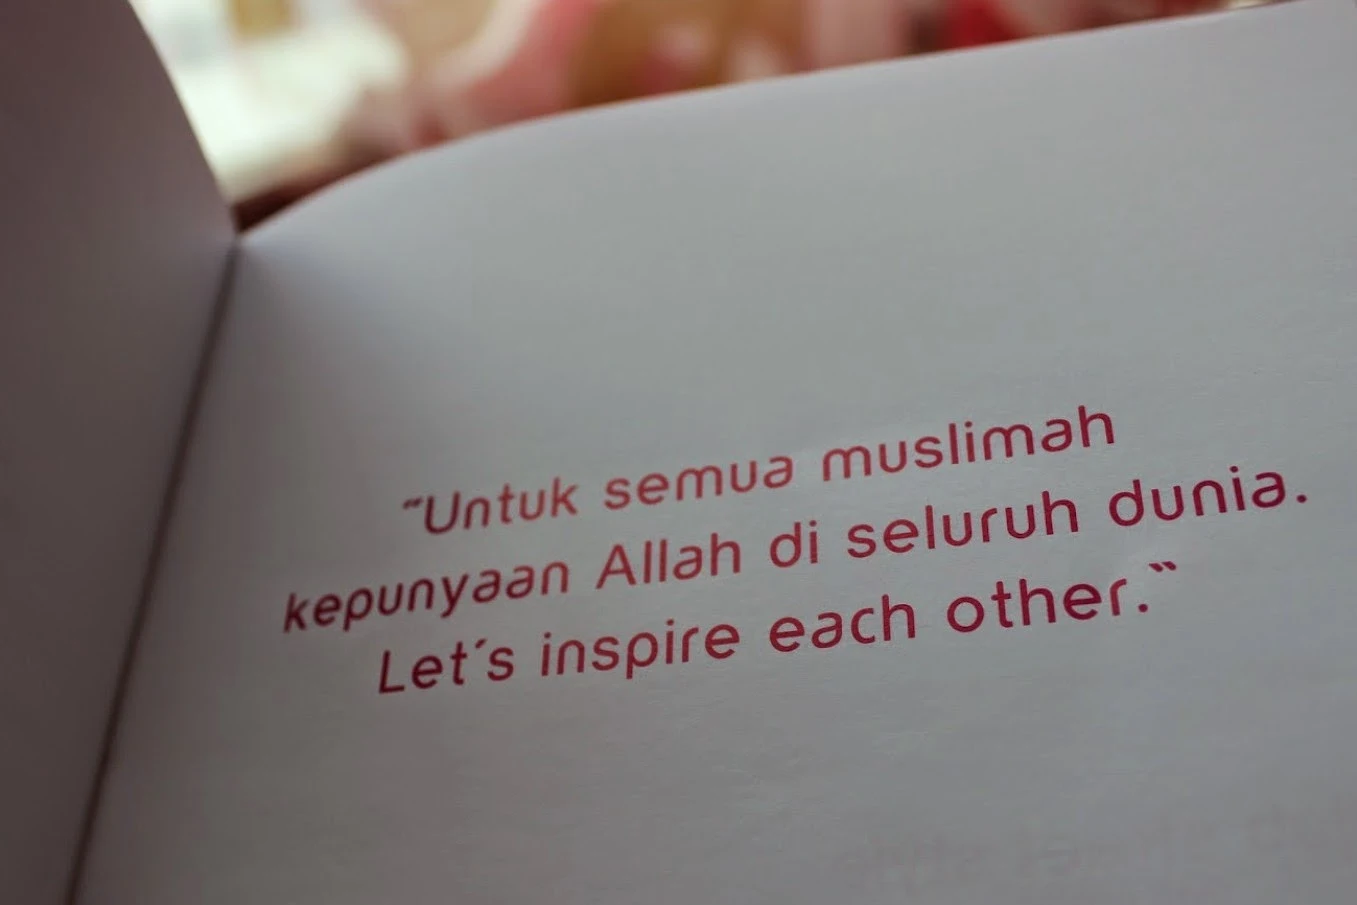 "Untuk semua muslimah
kepunyaan Allah di seluruh dunia.
Let's inspire each other."